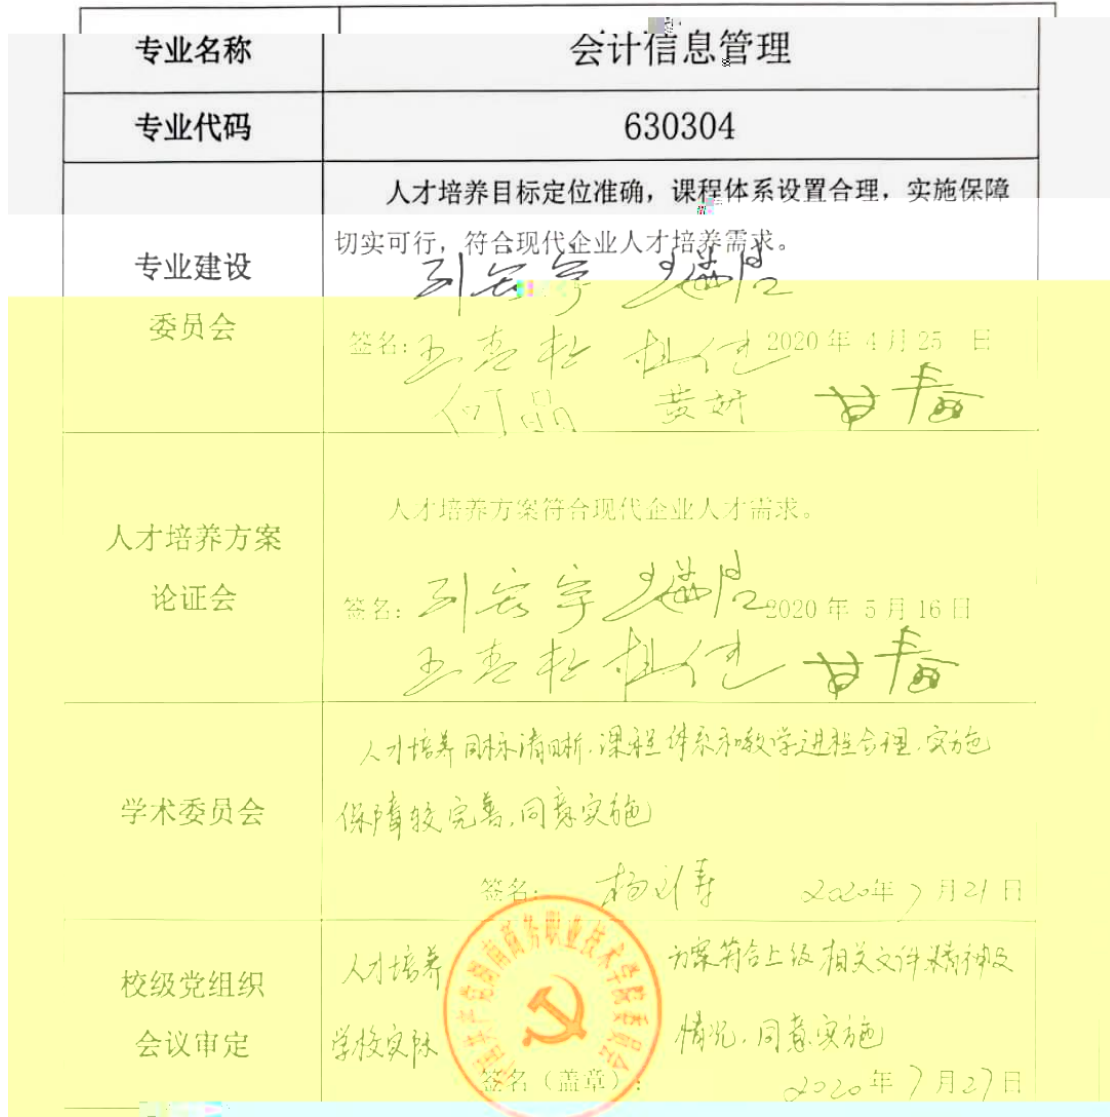 专业名称
会计信息管理
专业代码
630304
专业建设
委员会
人才培养目标定位准确，课程体系设置合理，实施保障
切实可行，符合现代企业人才培养需求。
签名：
2020 年 4 月 25 日
何晶 黄妍
人才培养方案
论证会
人才培养方案符合现代企业人才需求。
签名：
2020 年 5 月 16 日
学术委员会
人才培养目标清晰，课程体系和教学进程合理，实施
保障较完善，同意实施
签名：
2020年7月21日
校级党组织
会议审定
人才培养方案符合上级相关文件精神及
学校实际情况，同意实施
签名（盖章）：
2020年7月27日
中国共产党湖南商务职业技术学院委员会